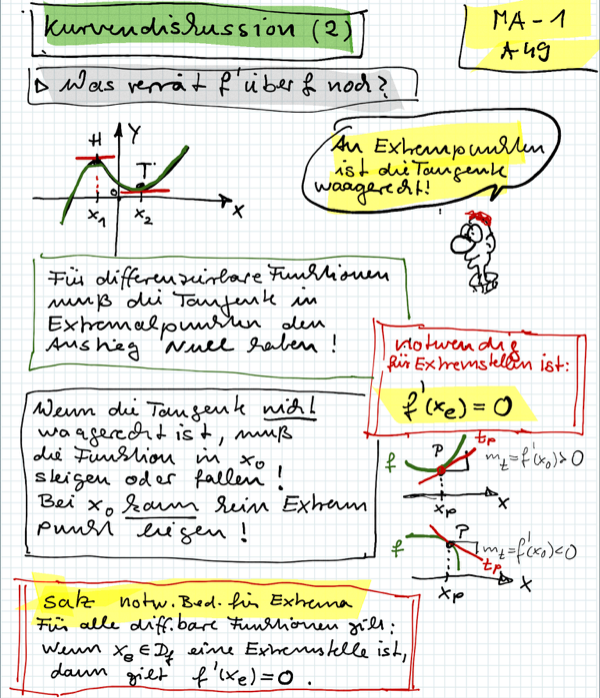 Kurvendiskussion (2)
MA-1
A49
▷ Was verrät f' über f noch?
H
Y
T
0
x₁
x₂
X
An Extrempunkten
ist die Tangente
waagerecht!
Für differenzierbare Funktionen
muß die Tangente in
Extremalpunkten den
Anstieg Null haben!
Notwendig
für Extremstellen ist:
f'(xₑ) = 0
Wenn die Tangente nicht
waagerecht ist, muß
die Funktion in x₀
steigen oder fallen!
Bei x₀ kann kein Extrem
punkt liegen!
f
P
tₚ
mₜ=f'(x₀)>0
xₚ
X
f
P
mₜ=f'(x₀)<0
tₚ
xₚ
X
Satz notw. Bed. für Extrema
Für alle diff.bare Funktionen gilt:
Wenn xₑ ∈ D_f eine Extremstelle ist,
dann gilt f'(xₑ)=0.